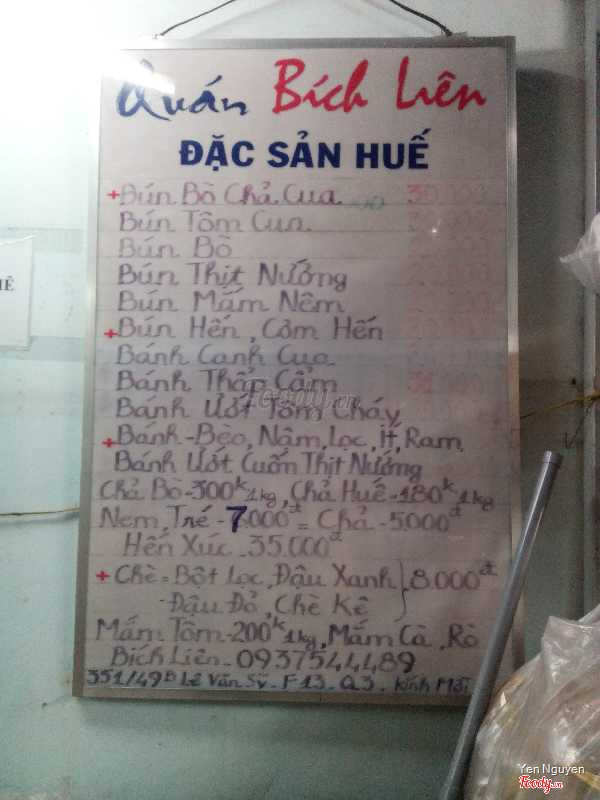 Quán Bích Liên
ĐẶC SẢN HUẾ
+ Bún Bò Chả Cua 30.000
Bún Tôm Cua
Bún Bò
Bún Thịt Nướng
Bún Mắm Nêm
+ Bún Hến, Cơm Hến
Bánh Canh Cua
Bánh Thập Cẩm
Bánh Ướt Tôm Cháy
+ Bánh-Bèo, Nậm, Lọc, Ít, Ram
Bánh Ướt Cuốn Thịt Nướng
Chả Bò-300k 1kg, Chả Huế-180k 1kg
Nem, Tré -7.000đ = Chả -5.000đ
Hến Xúc -35.000đ
+ Chè = Bột Lọc, Đậu Xanh } 8.000đ
-Đậu Đỏ, Chè Kê
Mắm Tôm-200k 1kg, Mắm Cà, Rò
Bích Liên - 0937544489
351/49B Lê Văn Sỹ - F13 - Q3 - Kính Mời
Foody.vn
Yen Nguyen
Foody.vn